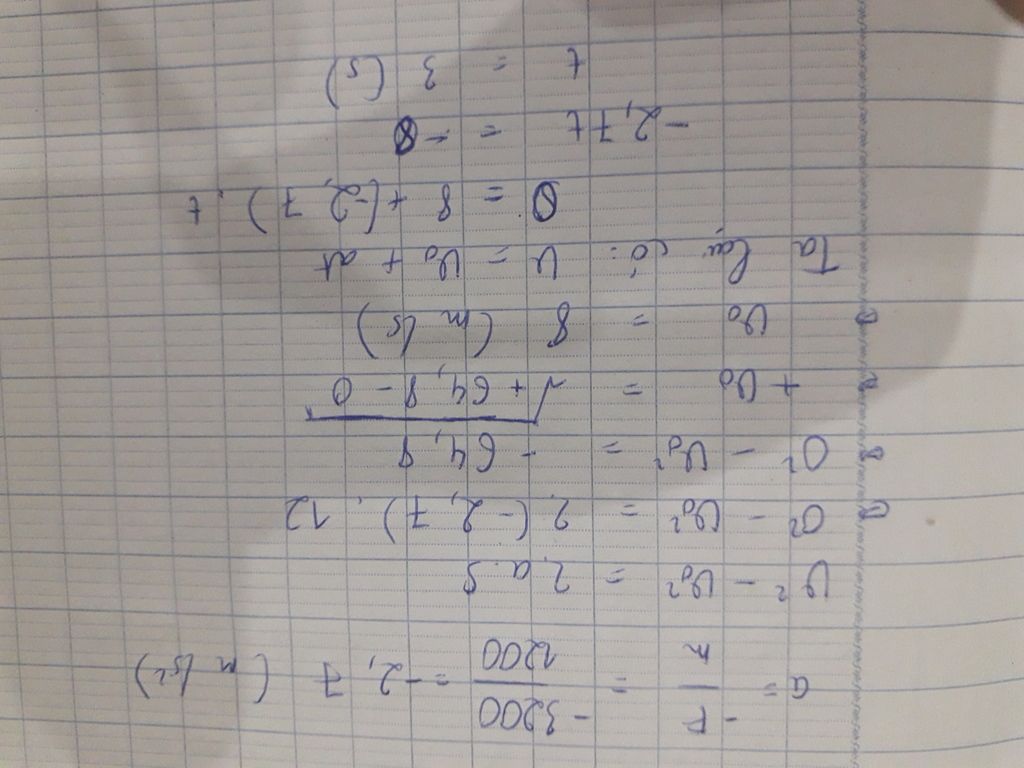 a = -F/m = -3200/1200 = -2,7 (m/s²)
v² - v₀² = 2.a.S
0² - v₀² = 2.(-2,7).12
0² - v₀² = -64,8
+ v₀ = √+64,8 - 0
v₀ = 8 (m/s)
Ta lại có: v = v₀ + at
0 = 8 + (-2,7).t
-2,7t = -8
t = 3 (s)